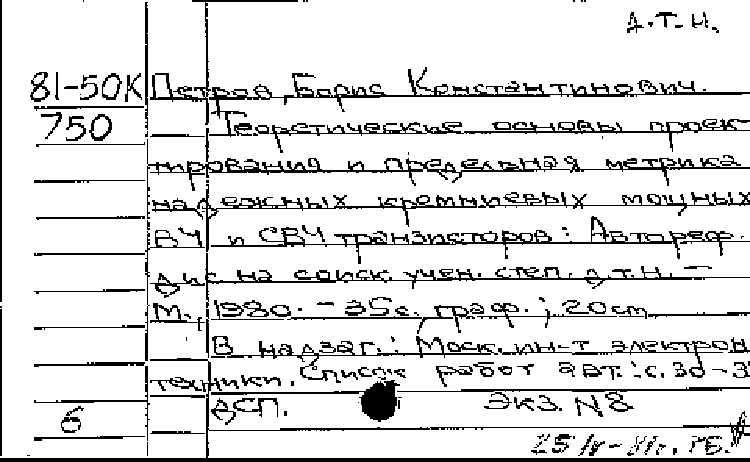 Д.Т.Н.
81-50К Петров, Борис Константинович.
750 Теоретические основы проек-
тирования и предельная метрика
надежных кремниевых мощных
ВЧ и СВЧ транзисторов: Автореф.
дис на соиск. учен. степ. д.т.н. –
М., 1980. – 35с. граф.; 20см
В надзаг.: Моск. ин-т электрон
техники. Список работ авт.: с. 30-3
6 ДСП. Экз. N8